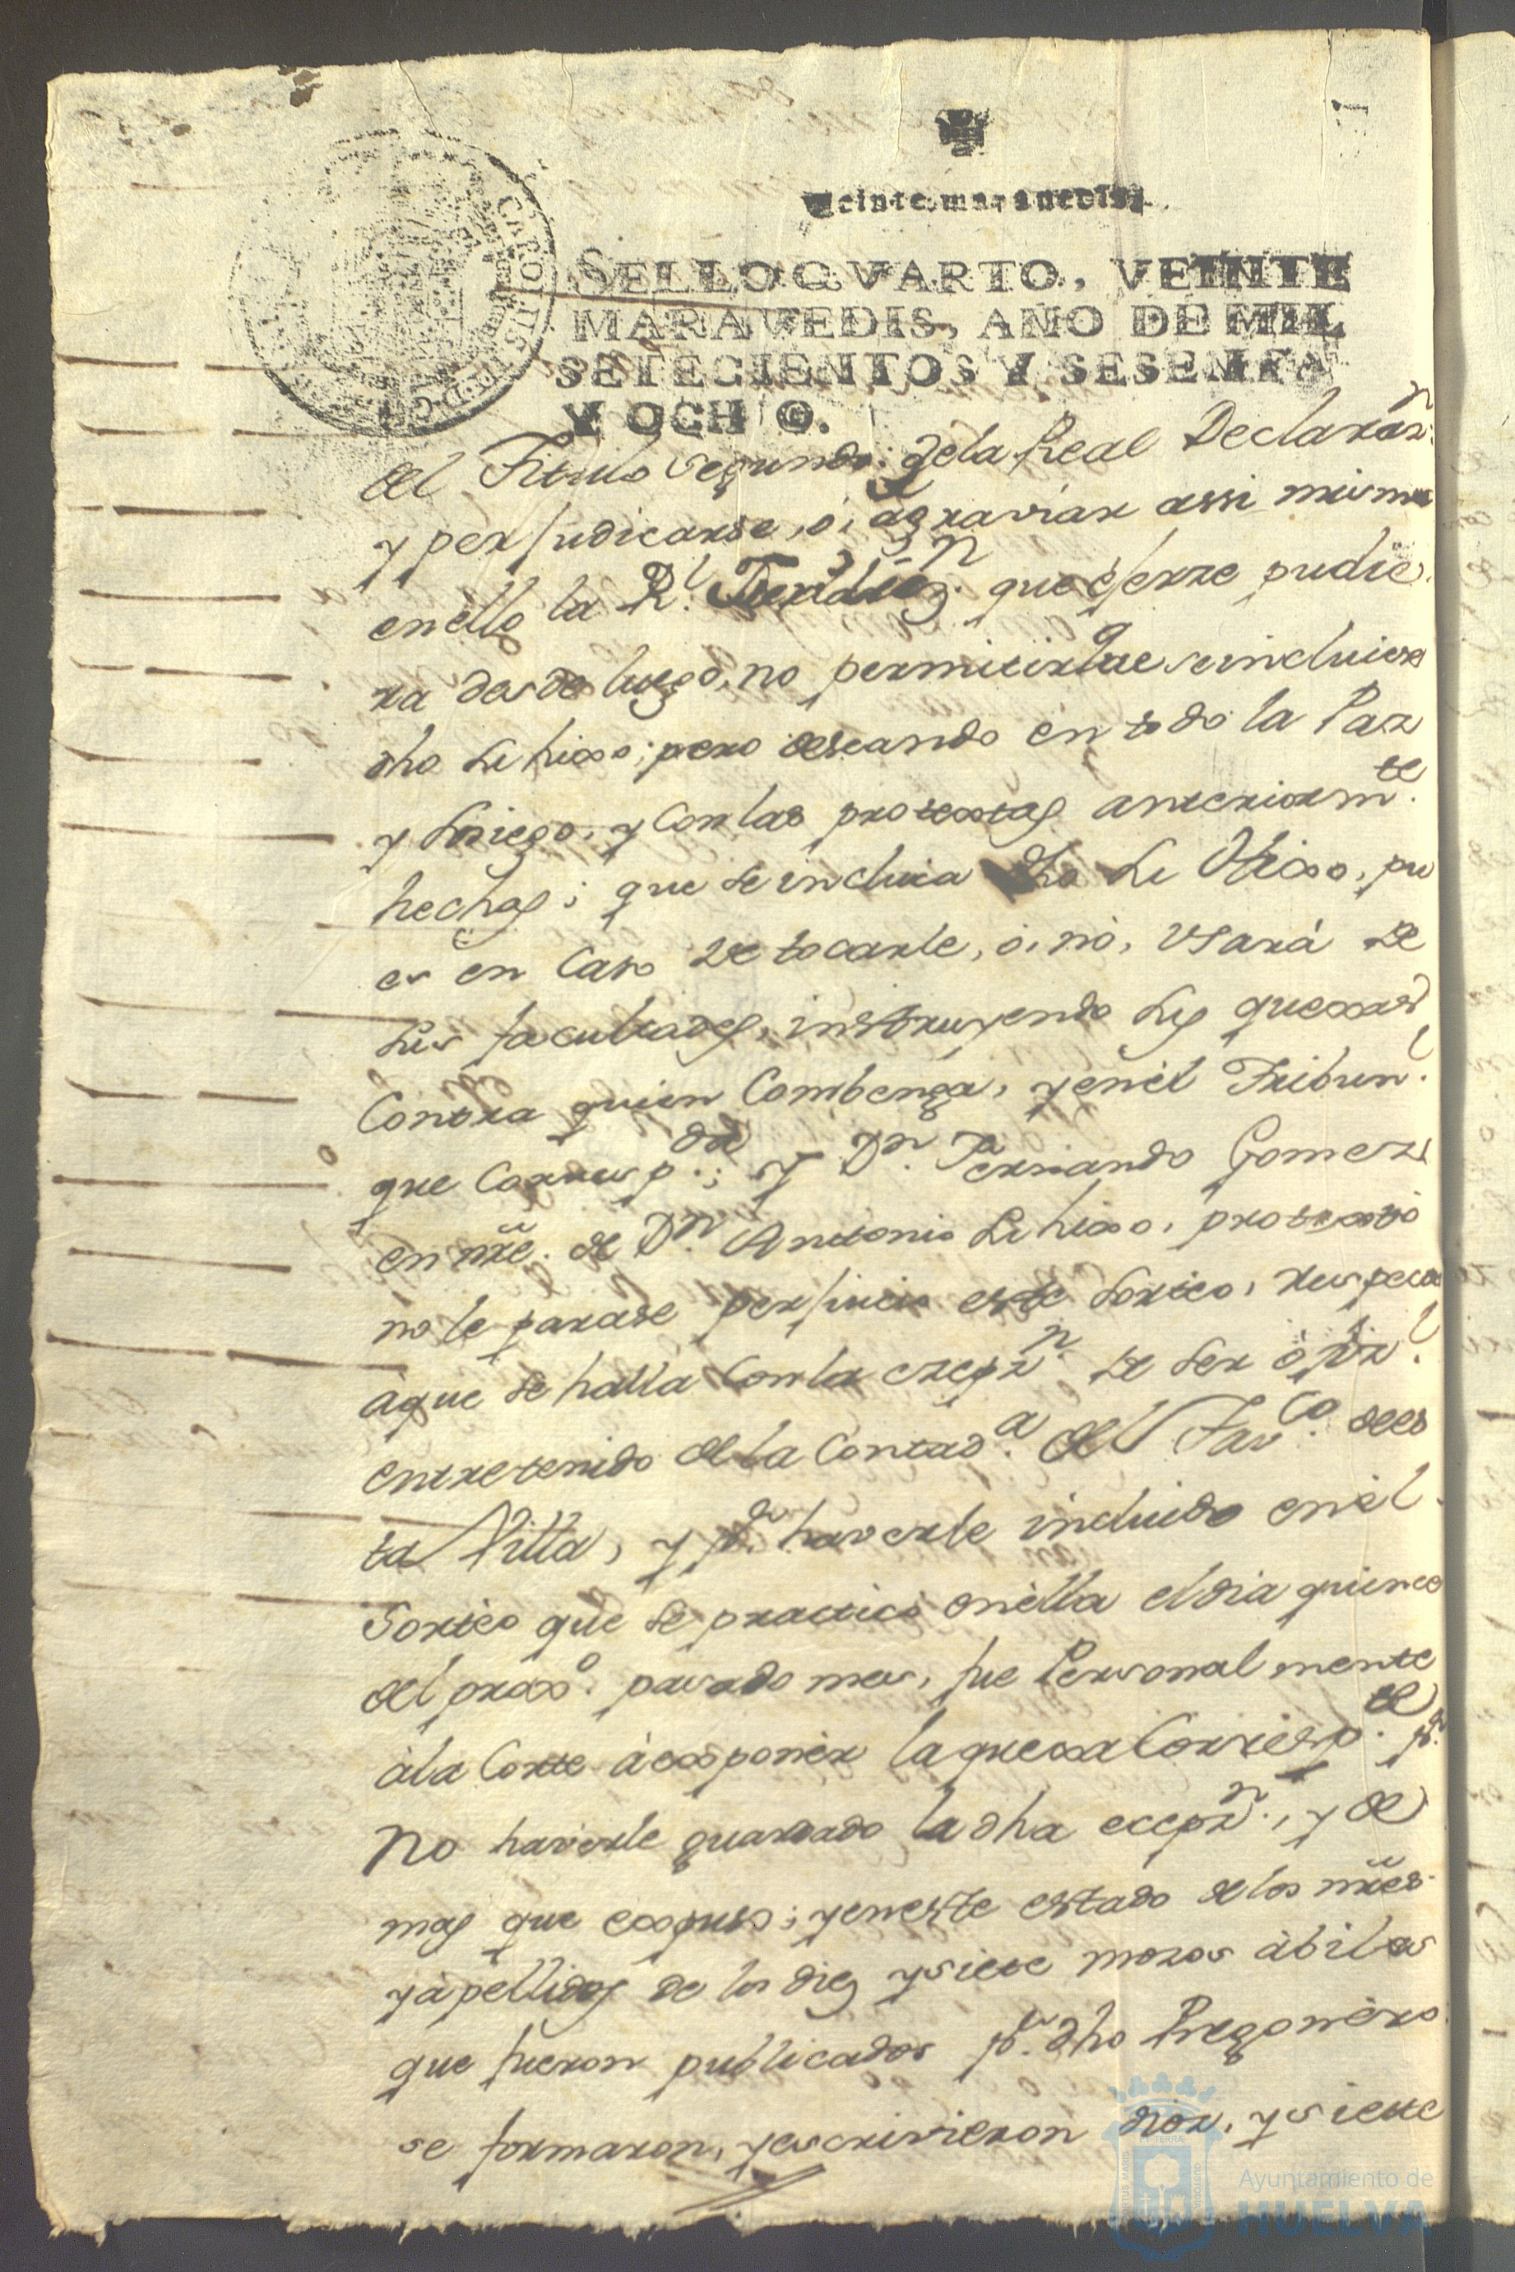 Veinte maravedis.
SELLO QVARTO, VEINTE
MARAVEDIS, AÑO DE MIL
SETECIENTOS Y SESENTA
Y OCHO.
CAROLUS III D G
del Titulo segundo de la Real Declaraz.n
y perjudicarse, ó, agraviar assi mismo
en ello la R.l Jurisdiz.n que èjerze pudie
ra desde luego, no permitir que se incluiese
dho Lihixo; pero deseando en todo la Paz
y sosiego, y con las protextas anteriorm.te
hechas; que se incluia dho Li Hixo, pu
es en Caso de tocarle, ó, no, usará de
sus facultades, instruyendo sus quexas
Contra quien Combenga, y en èl Tribun.l
que Corresp.de; y D.n Fernando Gomez
en nre. de D.n Antonio Lihixo, protextó
no le parase perjuicio este sorteo, respecto
àque se halla con la exepz.n de ser ofiz.l
entretenido de la Contad.a del Tav.co de es
ta Villa, y p.r haverle incluido en èl
Sorteo que se practicó en èlla el dia quince
del prox.o pasado mes, fue Personalmente
àla Corte à exponer la quexa Corresp.te p.r
No haverle guardado la dha ecepz.n, y de
mas que expuso; y en este estado de los nres.
y àpellidos de los diez y siete mozos àbiles
que fueron publicados p.r dho Pregonèro
se formaron, y escrivieron diez, y siete
Ayuntamiento de
HUELVA